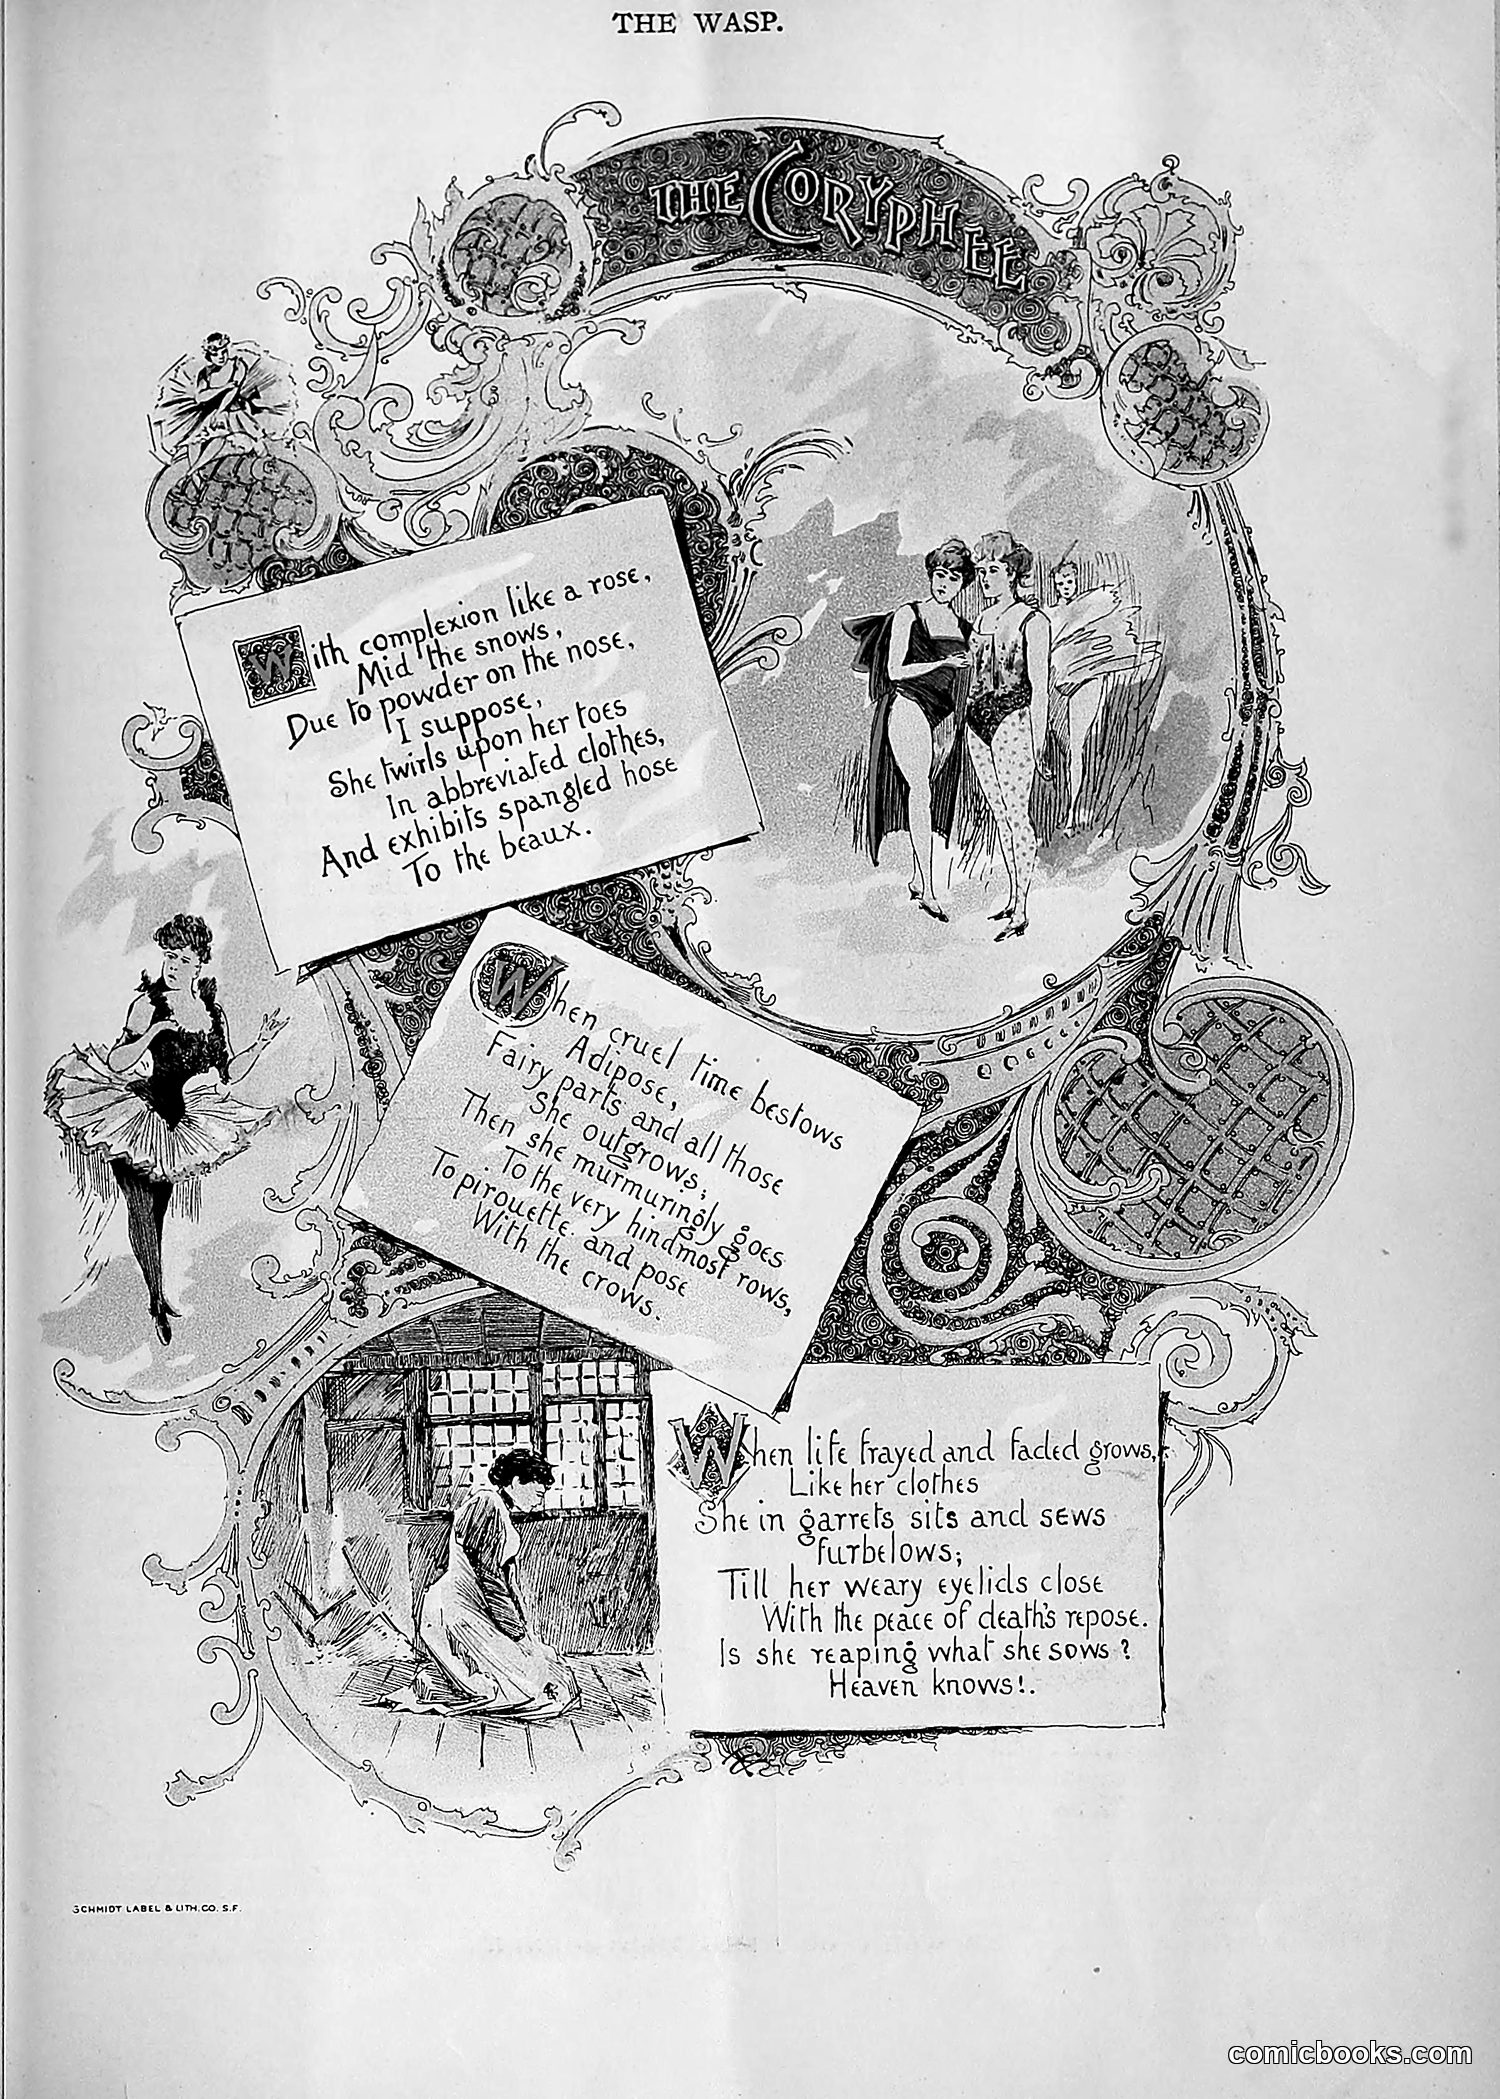 THE WASP.
THE CORYPHEE
With complexion like a rose,
Mid the snows,
Due to powder on the nose,
I suppose,
She twirls upon her toes
In abbreviated clothes,
And exhibits spangled hose
To the beaux.
When cruel time bestows
Adipose,
Fairy parts and all those
She outgrows;
Then she murmuringly goes
To the very hindmost rows,
To pirouette and pose
With the crows.
When life frayed and faded grows,
Like her clothes
She in garrets sits and sews
furbelows;
Till her weary eyelids close
With the peace of death's repose.
Is she reaping what she sows?
Heaven knows!.
SCHMIDT LABEL & LITH. CO. S.F.
comicbooks.com